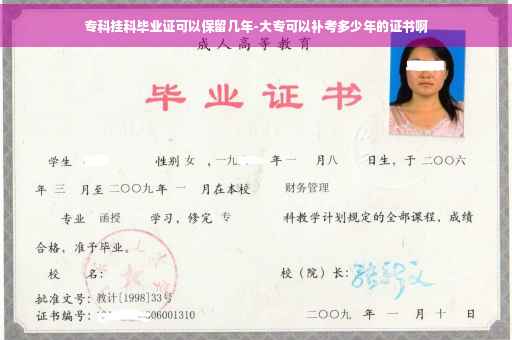 专科挂科毕业证可以保留几年-大专可以补考多少年的证书啊
成人高等教育
毕业证书
学生 性别 女 ，一九 年 一 月八 日生，于 二〇〇六
年 三 月至 二〇〇九 年 一 月在本校 财务管理
专业 函授 学习，修完 专 科教学计划规定的全部课程，成绩
合格，准予毕业。
校 名： 校（院）长：
批准文号：教计[1998]33号
证书编号： 06001310 二〇〇九 年 一 月 十 日